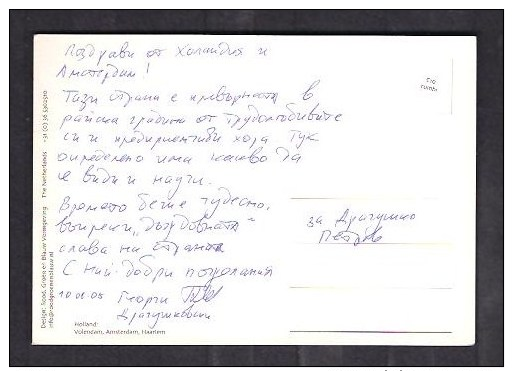 Поздрави от Холандия и
Амстердам!
Тази страна е превърната в
райска градина от трудолюбивите
си и предприемчиви хора. Тук
определено има какво да
се види и научи.
Времето беше чудесно,
въпреки "дъждовната"
слава на страната
С най-добри пожелания
Георги
за Драгушко
Петров
Holland:
Volendam, Amsterdam, Haarlem
Design: Rood, Groen en Blauw Vormgeving The Netherlands